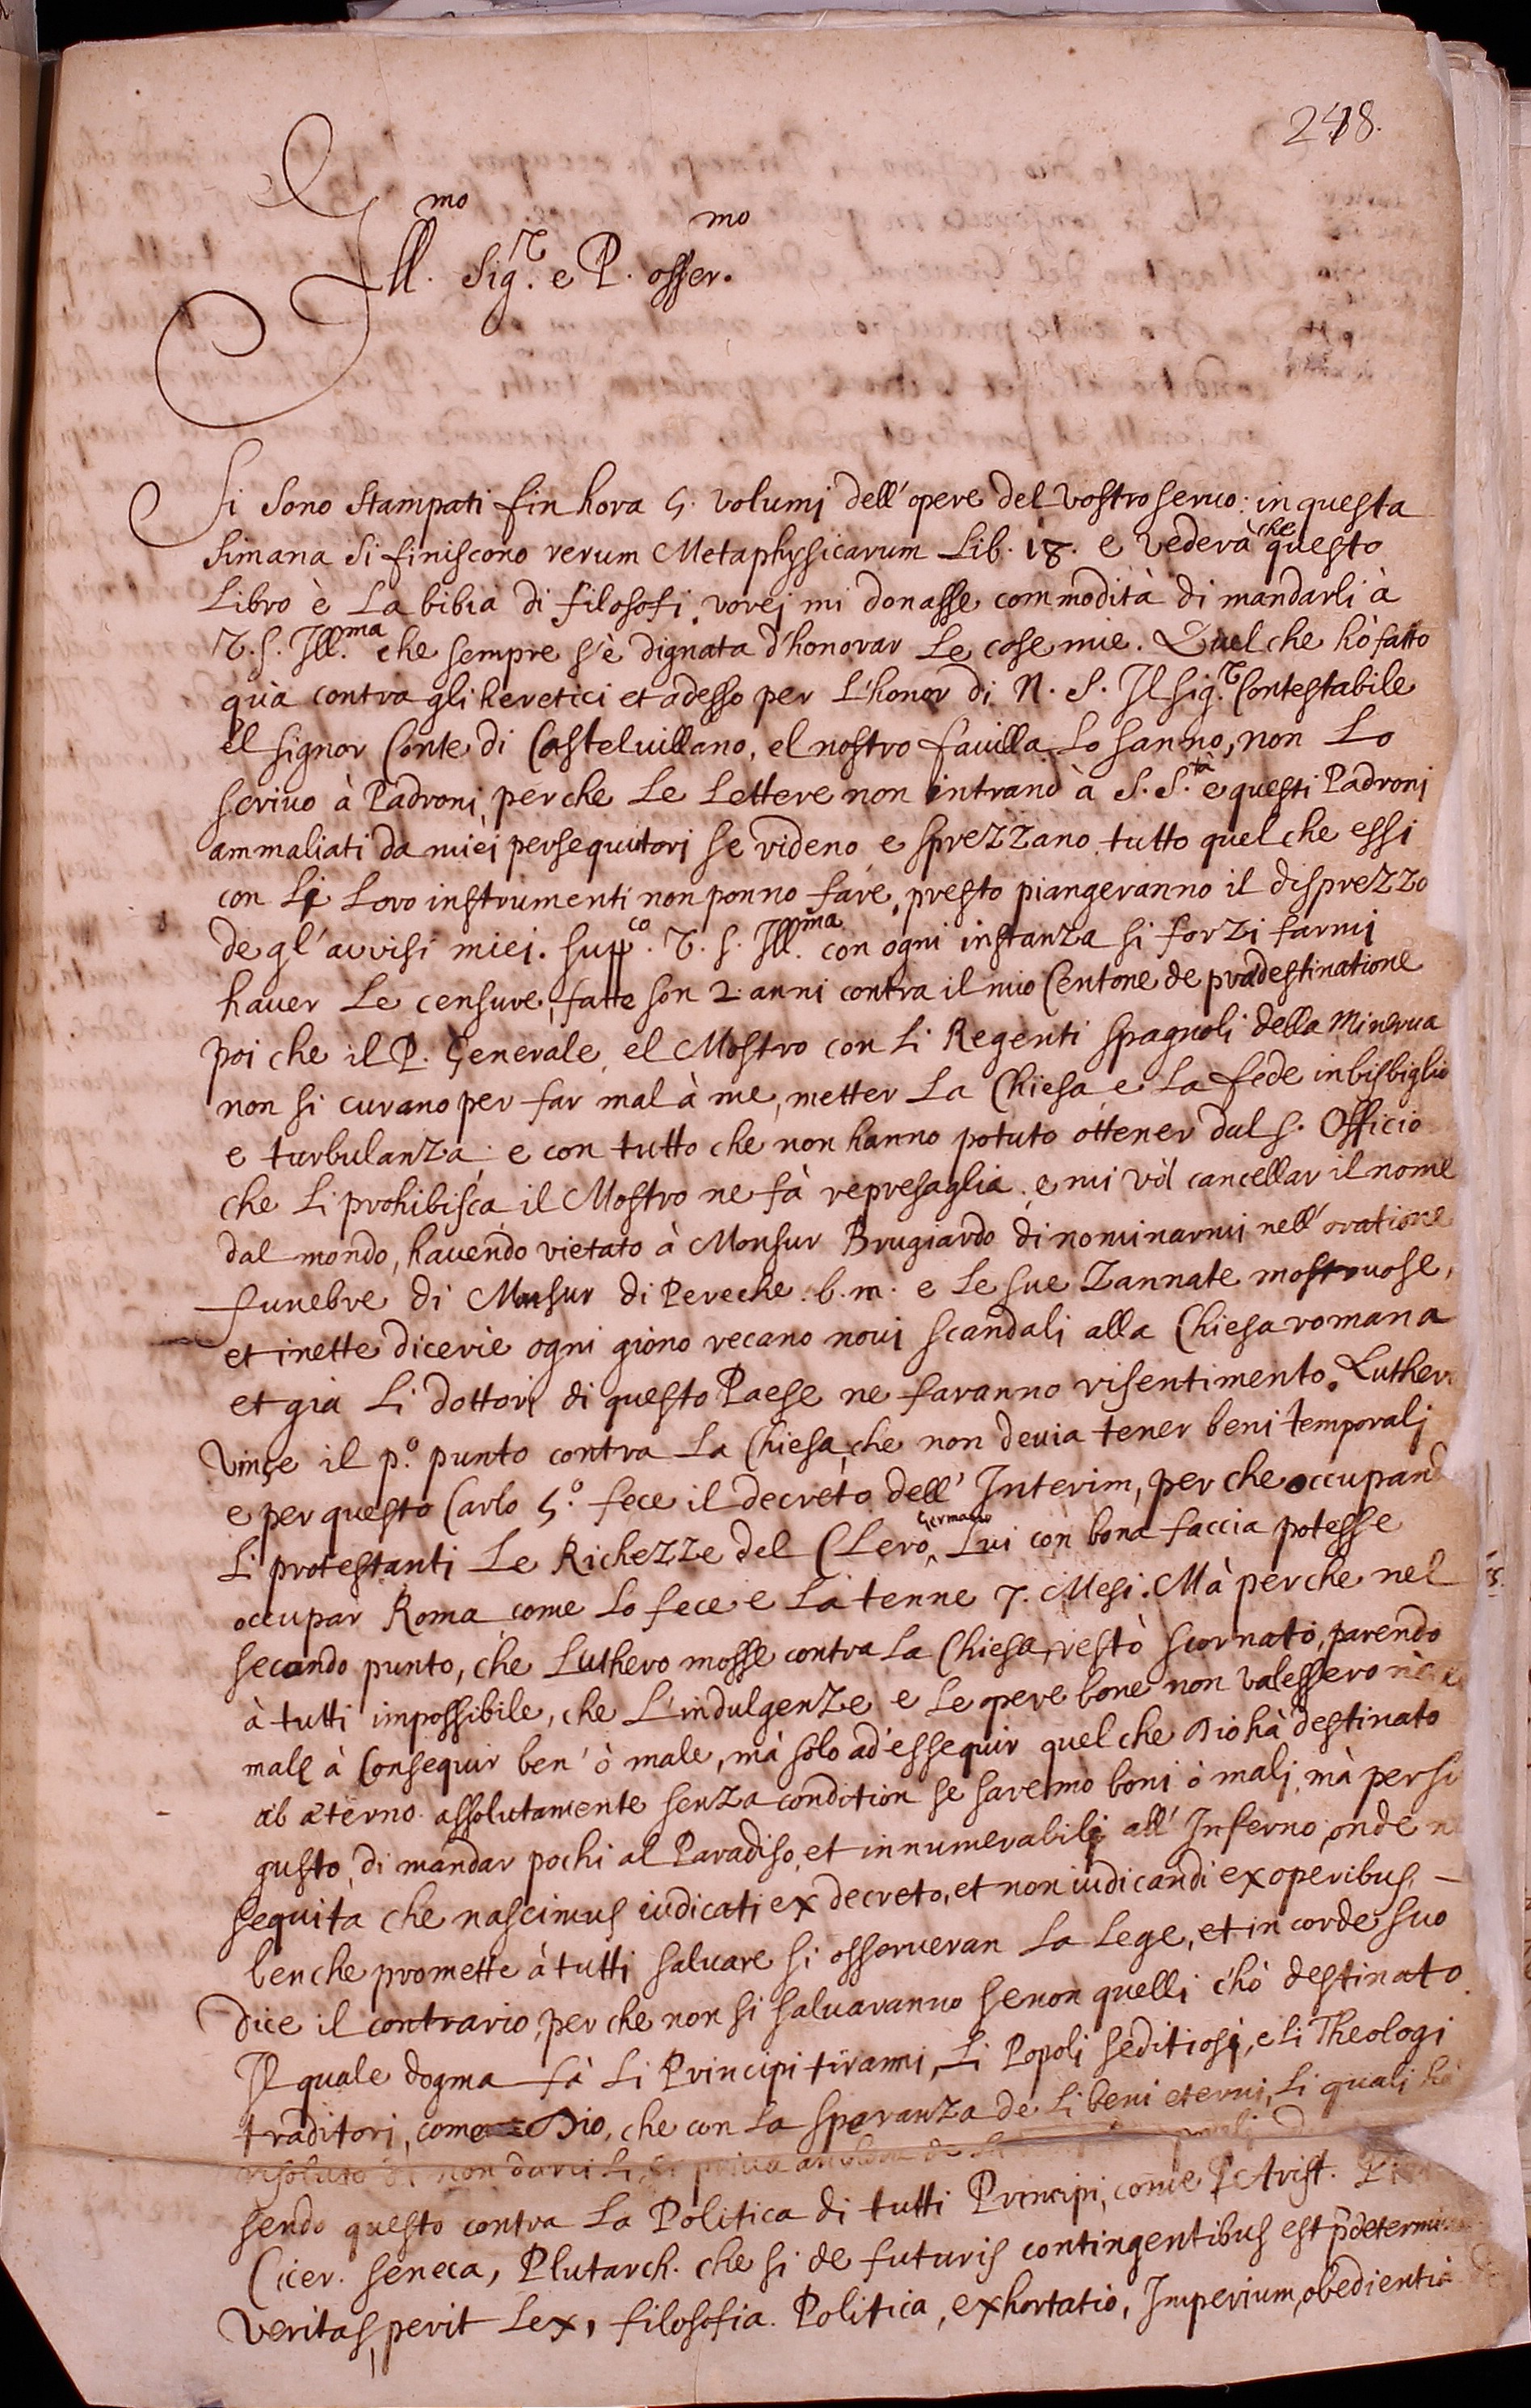 248.
Ill.mo Sig.r e P. osser.mo
Si sono stampati fin hora 5. volumi dell'opere del vostro seruo: in questa
simana si finiscono rerum Metaphysicarum Lib. 18. e vederà che questo
Libro è La bibia di filosofi. vorej mi donasse commodità di mandarli à
V.S. Ill.ma che sempre s'è dignata d'honorar Le cose mie. Quel che hò fatto
quà contra gli heretici et adesso per L'honor di N. S. Il sig.r Contestabile
el signor Conte di Castelvillano, el nostro fauilla Lo sanno, non Lo
scriuo à Padroni, perche Le Lettere non intrano à S. S.tà e questi Padroni
ammaliati da miei persequutori se rideno e sprezzano tutto quel che essi
con Li Loro instrumenti non ponno fare, presto piangeranno il disprezzo
de gl'avvisi miei. supp.co V. S. Ill.ma con ogni instanza si forzi farmi
hauer Le censure, fatte son 2. anni contra il mio Centone de prædestinatione
poi che il P. Generale el Mostro con Li Regenti spagnoli della Minerua
non si curano per far mal à me, metter La Chiesa e La fede in bisbiglio
e turbulanza: e con tutto che non hanno potuto ottener dal S. Officio
che Li prohibisca il Mostro ne fà represaglia. e mi vol cancellar il nome
dal mondo, hauendo vietato à Monsur Brugiardo di nominarmi nell'oratione
funebre di Musur di Pereche. b. m. e Le sue Zannate mostruose,
et inette dicerie ogni giono recano noui scandali alla Chiesa romana
et gia Li dottori di questo Paese ne faranno risentimento. Luthero
Vinçe il p.o punto contra La Chiesa, che non deuia tener beni temporalj
e per questo Carlo 5.o fece il decreto dell' Interim, per che occupand
Li protestanti Le Richezze del CLero Germano, Lui con bona faccia potesse
occupar Roma come Lo fece e La tenne 7. Mesi. Mà perche nel
secondo punto, che Luthero mosse contra La Chiesa, restò scornato, parendo
à tutti impossibile, che L'indulgenze e Le opere bone non valessero nè
male à Consequir ben' ò male, mà solo ad essequir quel che Dio hà destinato
ab æterno assolutamente senza condition se saremo boni ò malj, mà per su
gusto, di mandar pochi al Paradiso, et innumerabili all' Inferno, onde n
sequita che nascimus iudicati ex decreto, et non iudicandi ex operibus, -
benche promette à tutti saluare si osserueran La Lege, et in corde suo
dice il contrario, per che non si saluaranno senon quelli c'hò destinato.
Il quale dogma fà Li Principi tiranni, Li Popoli seditiosi, e Li Theologi
traditori, come Dio, che con La speranza de Li beni eterni, Li quali hà
risoluto di non darci Li, ci priua anchora de Li
sendo questo contra La Politica di tutti Principi, come P. Arist.
Cicer. Seneca, Plutarch. che si de futuris contingentibus est p̄determin
veritas, perit Lex, filosofia. Politica, exhortatio, Imperium, obedientia